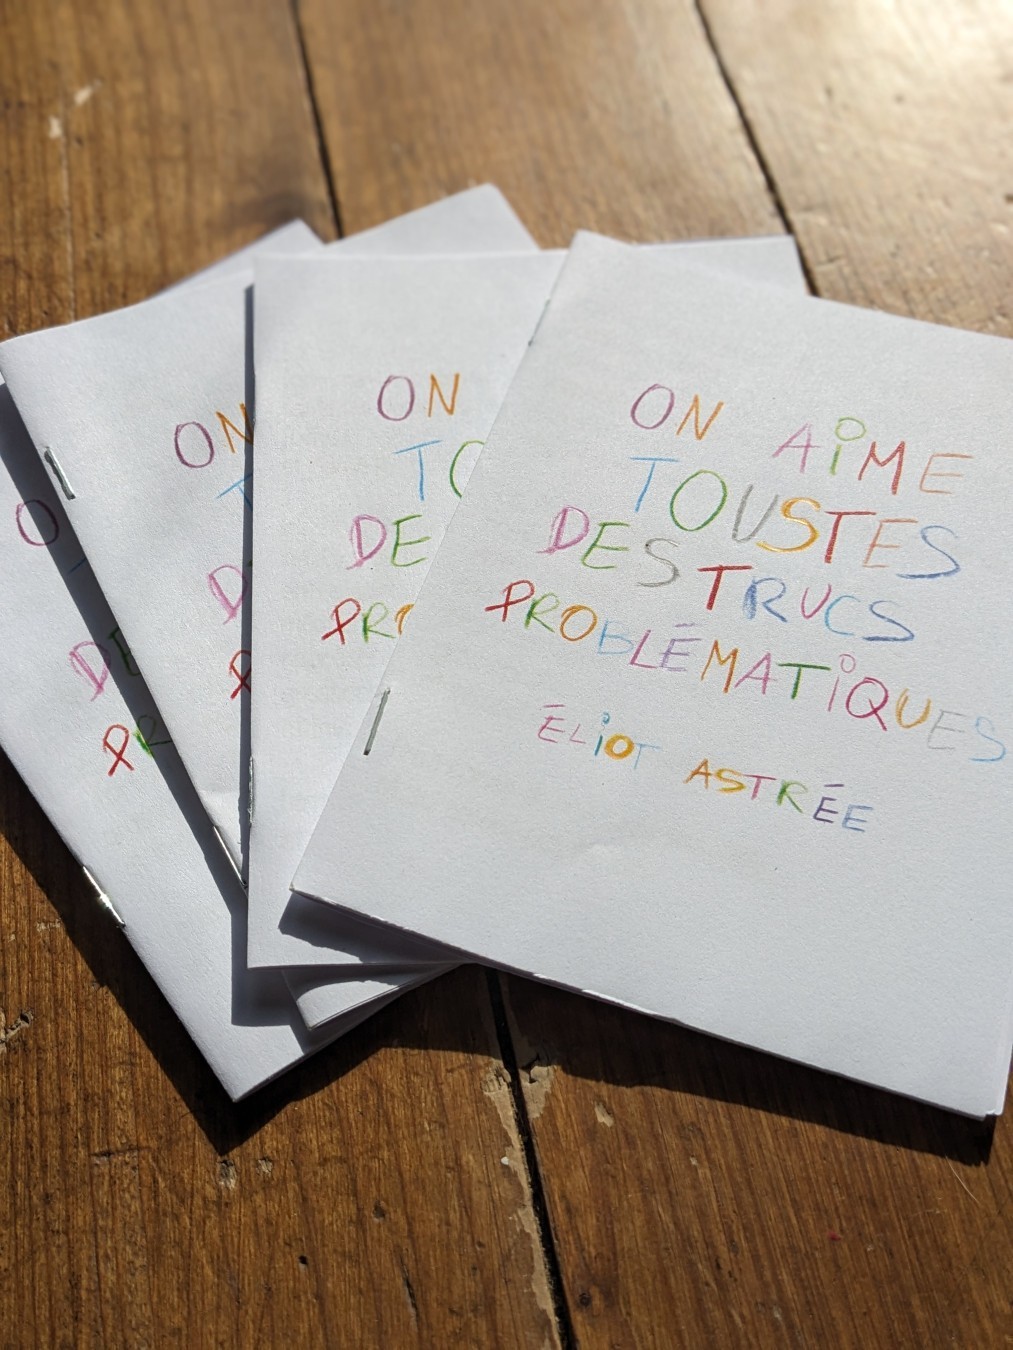 ON AiME
TOUSTES
DES TRUCS
PROBLÉMATiQUES
ÉLiOT ASTRÉE
ON
TO
DE
PRO
ON
T
D
P
O
DE
PR